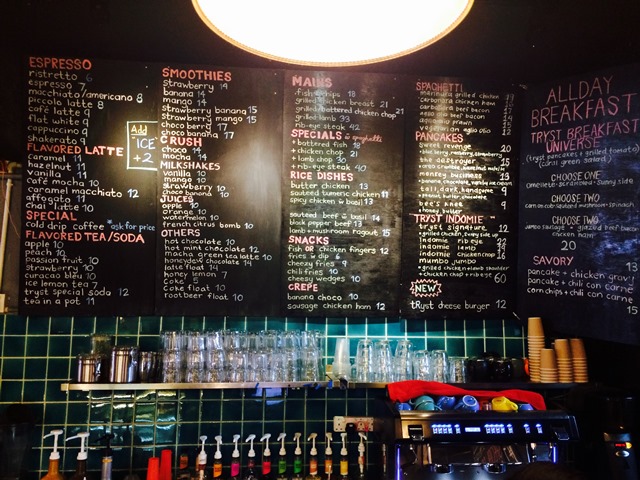 ESPRESSO
ristretto 6
espresso 7
macchiato/americana 8
piccolo latte 8
café latte 9
flat white 9
cappuccino 9
shakerato 9
Add
"ICE"
+2
FLAVORED LATTE
caramel 11
hazelnut 11
vanilla 11
café mocha 10
caramel macchiato 12
affogato 11
chai latte 10
SPECIAL
cold drip coffee *ask for price
FLAVORED TEA/SODA
apple 10
peach 10
passion fruit 10
strawberry 10
curacao bleu 10
ice lemon tea 7
tryst special soda 12
tea in a pot 11
SMOOTHIES
strawberry 14
banana 14
mango 14
strawberry banana 15
mango banana 15
choco berry 17
choco banana 17
CRUSH
choco 14
mocha 14
MILKSHAKES
vanilla 10
mango 10
strawberry 10
choco banana 10
JUICES
apple 10
orange 10
watermelon 10
french citrus bomb 10
OTHERS
hot chocolate 10
hot mint chocolate 12
macha green tea latte 10
honeydew chocolate 14
latte float 14
honey lemon 7
Coke 5
Coke float 10
rootbeer float 10
MAINS
fish & chips 18
grilled chicken breast 21
grilled/battered chicken chop 21
grilled lamb 33
rib eye steak 42
SPECIALS & spaghetti
+ battered fish 18
+ chicken chop 21
+ lamb chop 30
+ rib-eye steak 40
RICE DISHES
butter chicken 13
sauteed tumeric chicken 11
spicy chicken & basil 13
sauteed beef & basil 14
black pepper beef 13
lamb + mushroom ragout 15
SNACKS
fish or chicken fingers 12
fries & dip 6
cheezy fries 9
chili fries 10
cheesy wedges 10
CREPE
banana choco 10
sausage chicken ham 12
SPAGHETTI
marinara grilled chicken
carbonara chicken ham
carbonara beef bacon
aglio olio beef bacon
vegetarian aglio olio
PANCAKES
sweet revenge 20
the destroyer 15
monkey business 13
tall, dark, handsome 9
bee's knee 9
honey butter
"TRYST INDOMIE"
tryst signature 12
indomie rib eye
indomie lamb
indomie chicken chop
mumbo jumbo
60
NEW
tryst cheese burger 12
ALLDAY
BREAKFAST
TRYST BREAKFAST
UNIVERSE
(tryst pancakes + grilled tomato)
or green salad)
CHOOSE ONE
omelette-scrambled-sunny side
CHOOSE TWO
corn-cate-sauteed mushroom-spinach
CHOOSE TWO
jumbo sausage + glazed beef bacon
chicken ham
20
SAVORY
pancake + chicken gravy
pancake + chili con carne
corn chips + chili con carne
15